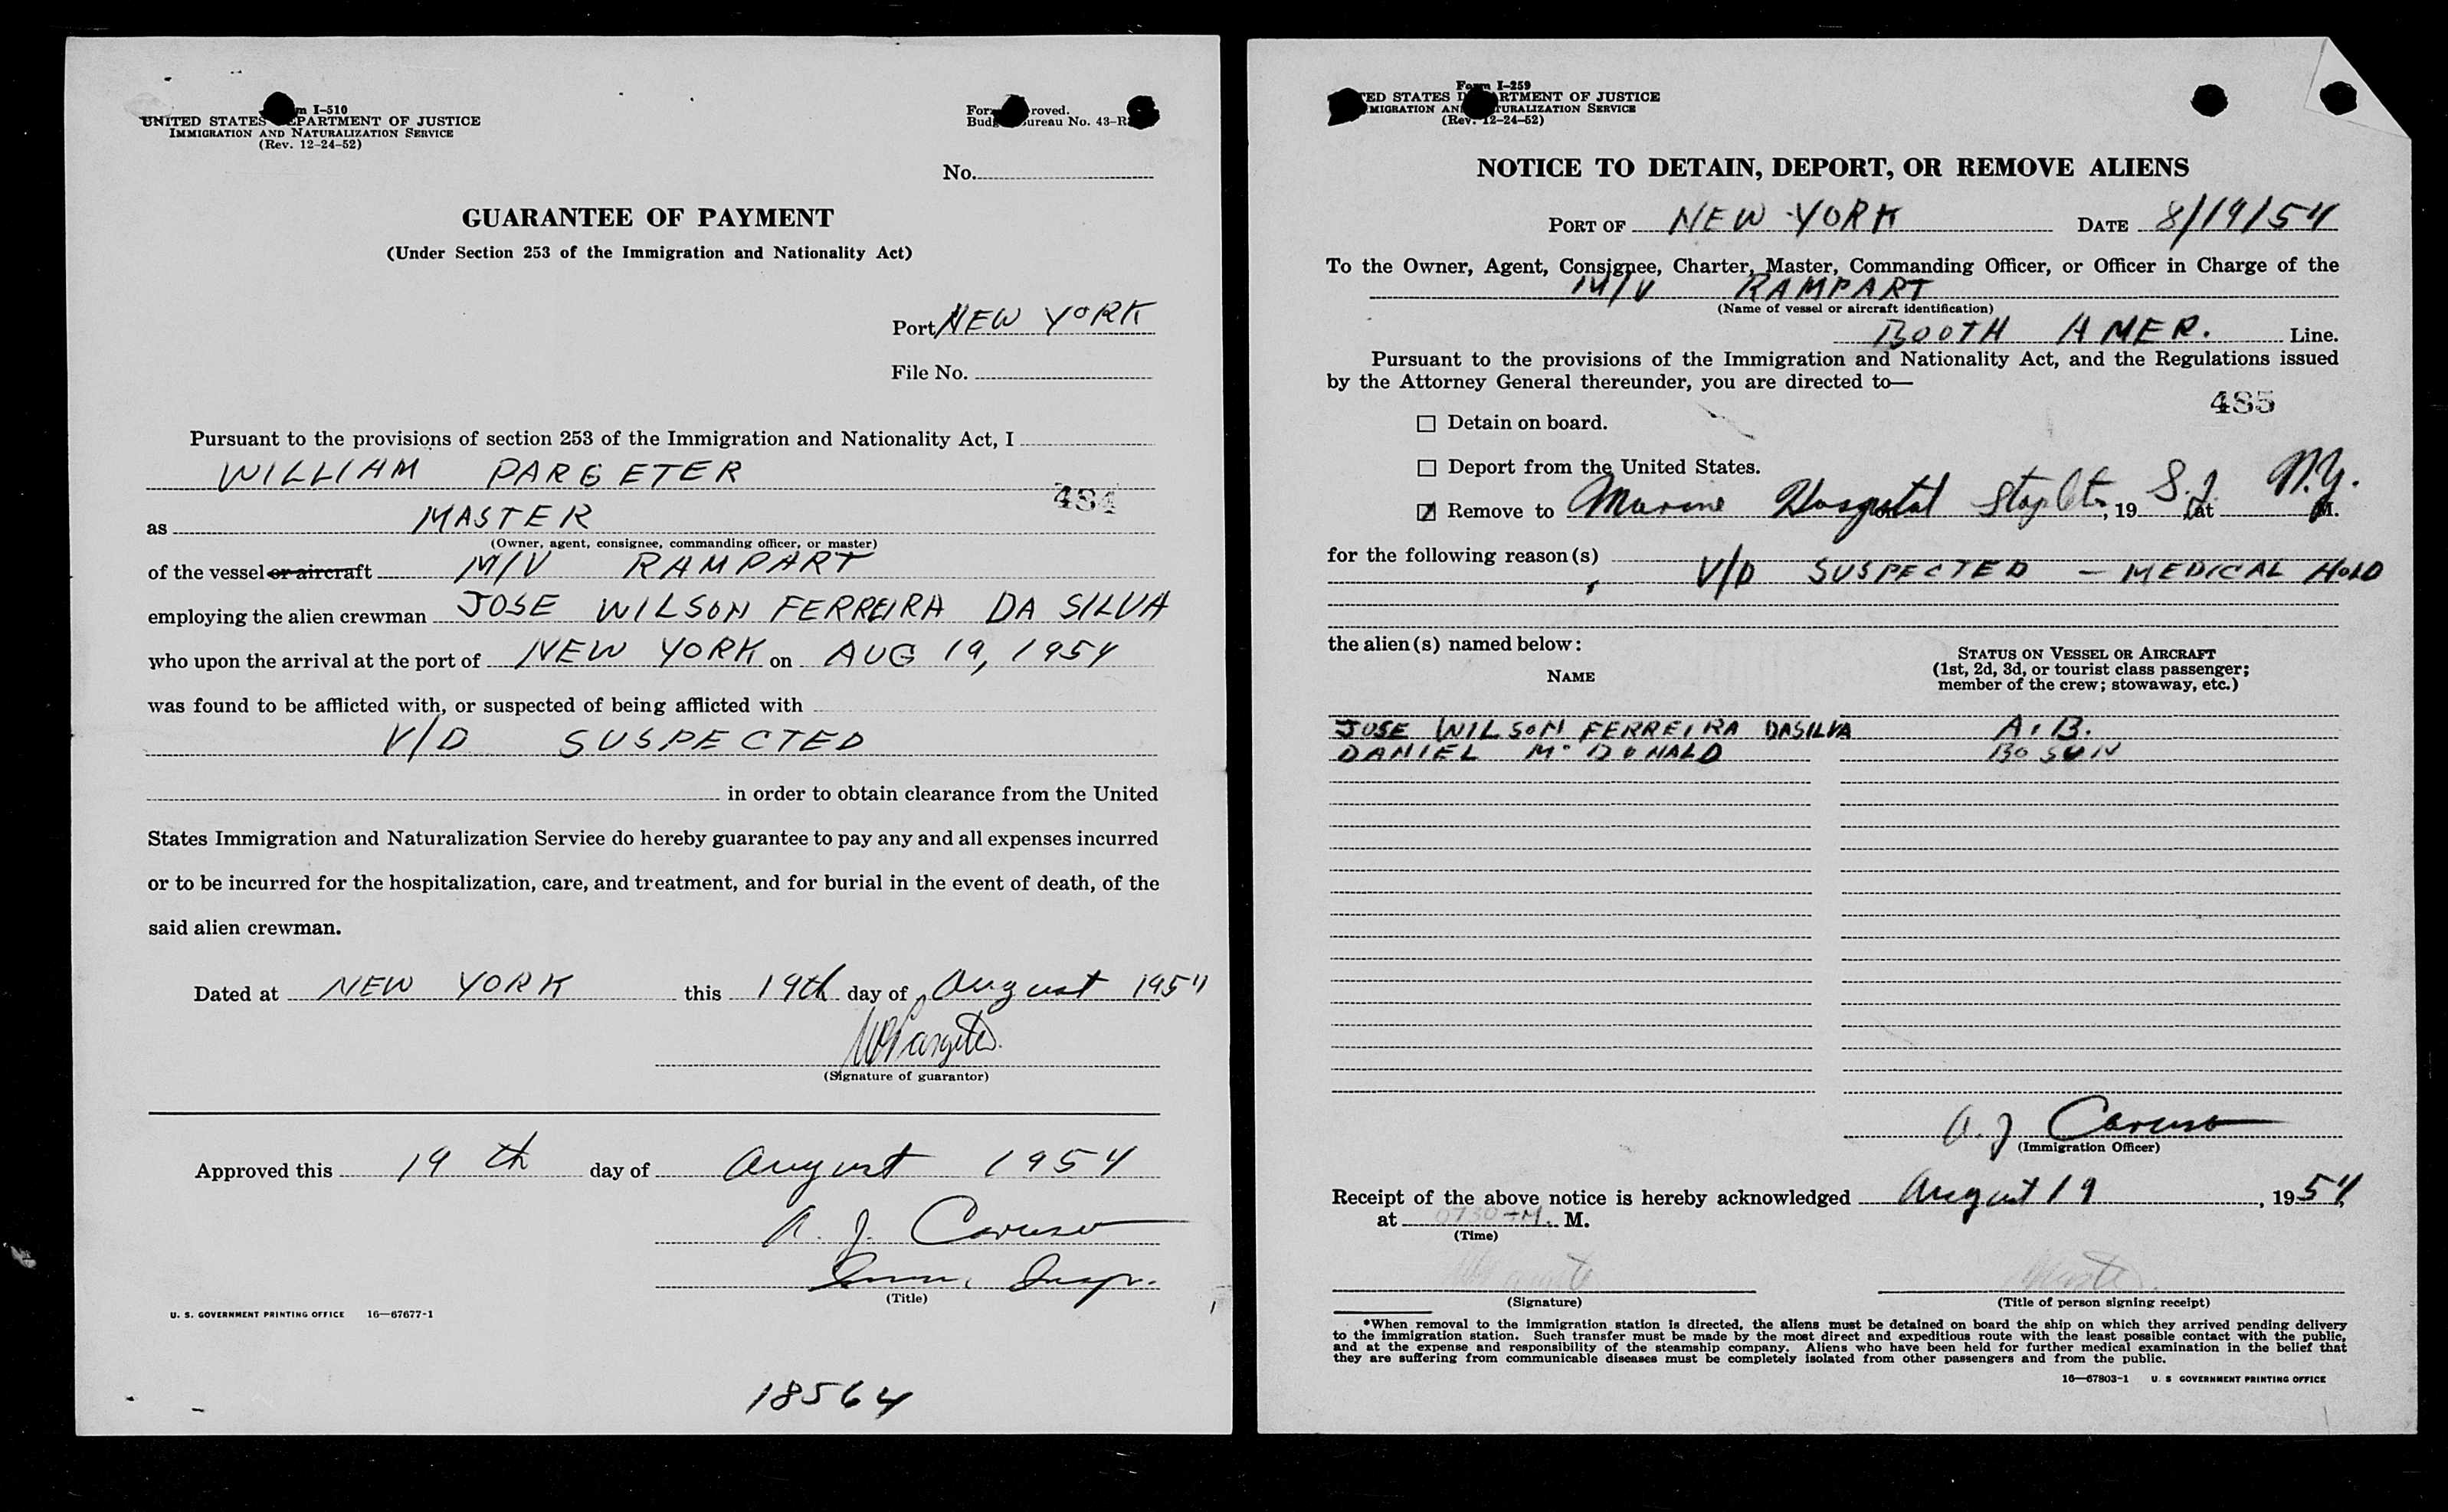 Form I-510
UNITED STATES DEPARTMENT OF JUSTICE
IMMIGRATION AND NATURALIZATION SERVICE
(Rev. 12-24-52)
Form Approved.
Budget Bureau No. 43-R
No.
GUARANTEE OF PAYMENT
(Under Section 253 of the Immigration and Nationality Act)
Port NEW YORK
File No.
Pursuant to the provisions of section 253 of the Immigration and Nationality Act, I
WILLIAM PARGETER
484
as MASTER
(Owner, agent, consignee, commanding officer, or master)
of the vessel or aircraft M/V RAMPART
employing the alien crewman JOSE WILSON FERREIRA DA SILVA
who upon the arrival at the port of NEW YORK on AUG 19, 1954
was found to be afflicted with, or suspected of being afflicted with
V/D SUSPECTED
in order to obtain clearance from the United
States Immigration and Naturalization Service do hereby guarantee to pay any and all expenses incurred
or to be incurred for the hospitalization, care, and treatment, and for burial in the event of death, of the
said alien crewman.
Dated at NEW YORK this 19th day of August 1954
W Pargeter
(Signature of guarantor)
Approved this 19 th day of August 1954
A. J. Caruso
Imm. Insp.
(Title)
U. S. GOVERNMENT PRINTING OFFICE 16—67677-1
18564
Form I-259
UNITED STATES DEPARTMENT OF JUSTICE
IMMIGRATION AND NATURALIZATION SERVICE
(Rev. 12-24-52)
NOTICE TO DETAIN, DEPORT, OR REMOVE ALIENS
PORT OF NEW YORK DATE 8/19/54
To the Owner, Agent, Consignee, Charter, Master, Commanding Officer, or Officer in Charge of the
M/V RAMPART
(Name of vessel or aircraft identification)
BOOTH AMER. Line.
Pursuant to the provisions of the Immigration and Nationality Act, and the Regulations issued
by the Attorney General thereunder, you are directed to—
485
Detain on board.
Deport from the United States.
Remove to Marine Hospital Stapleton, on , 19 S.I. at N.Y. M.
for the following reason(s)
V/D SUSPECTED - MEDICAL HOLD
the alien(s) named below:
NAME
STATUS ON VESSEL OR AIRCRAFT
(1st, 2d, 3d, or tourist class passenger;
member of the crew; stowaway, etc.)
JOSE WILSON FERREIRA DASILVA A.B.
DANIEL McDONALD BOSUN
A. J Caruso
(Immigration Officer)
Receipt of the above notice is hereby acknowledged August 19, 1954
at 0730 AM. M.
(Time)
(Signature)
(Title of person signing receipt)
*When removal to the immigration station is directed, the aliens must be detained on board the ship on which they arrived pending delivery
to the immigration station. Such transfer must be made by the most direct and expeditious route with the least possible contact with the public,
and at the expense and responsibility of the steamship company. Aliens who have been held for further medical examination in the belief that
they are suffering from communicable diseases must be completely isolated from other passengers and from the public.
16—67803-1 U. S GOVERNMENT PRINTING OFFICE